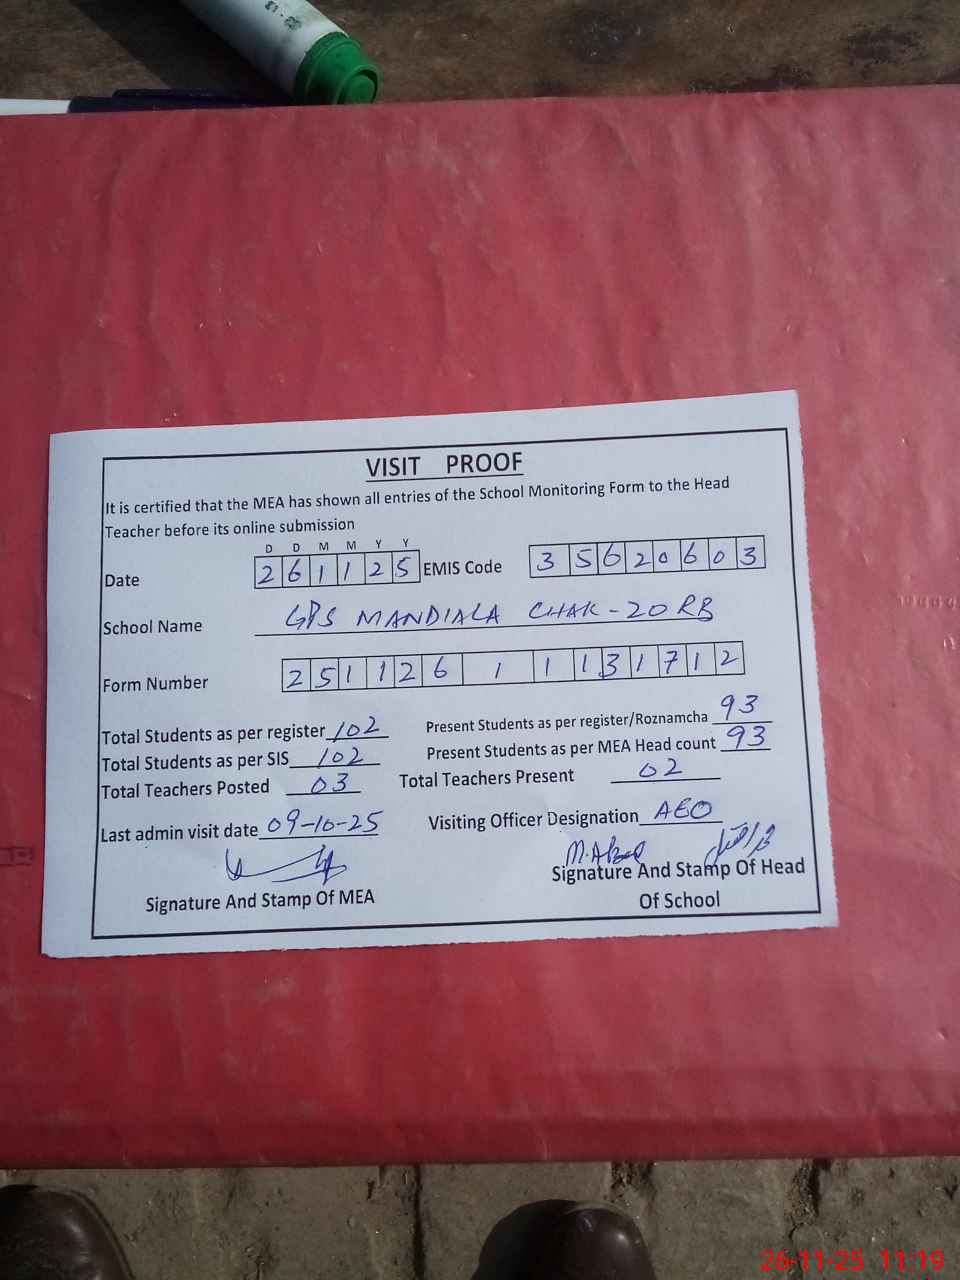 VISIT PROOF
It is certified that the MEA has shown all entries of the School Monitoring Form to the Head
Teacher before its online submission
D D M M Y Y
Date 261125 EMIS Code 35620603
School Name GPS MANDIALA CHAK-20 RB
Form Number 251126 1 1131712
Total Students as per register 102 Present Students as per register/Roznamcha 93
Total Students as per SIS 102 Present Students as per MEA Head count 93
Total Teachers Posted 03 Total Teachers Present 02
Last admin visit date 09-10-25 Visiting Officer Designation AEO
Signature And Stamp Of MEA Signature And Stamp Of Head
Of School
26-11-25 11:19